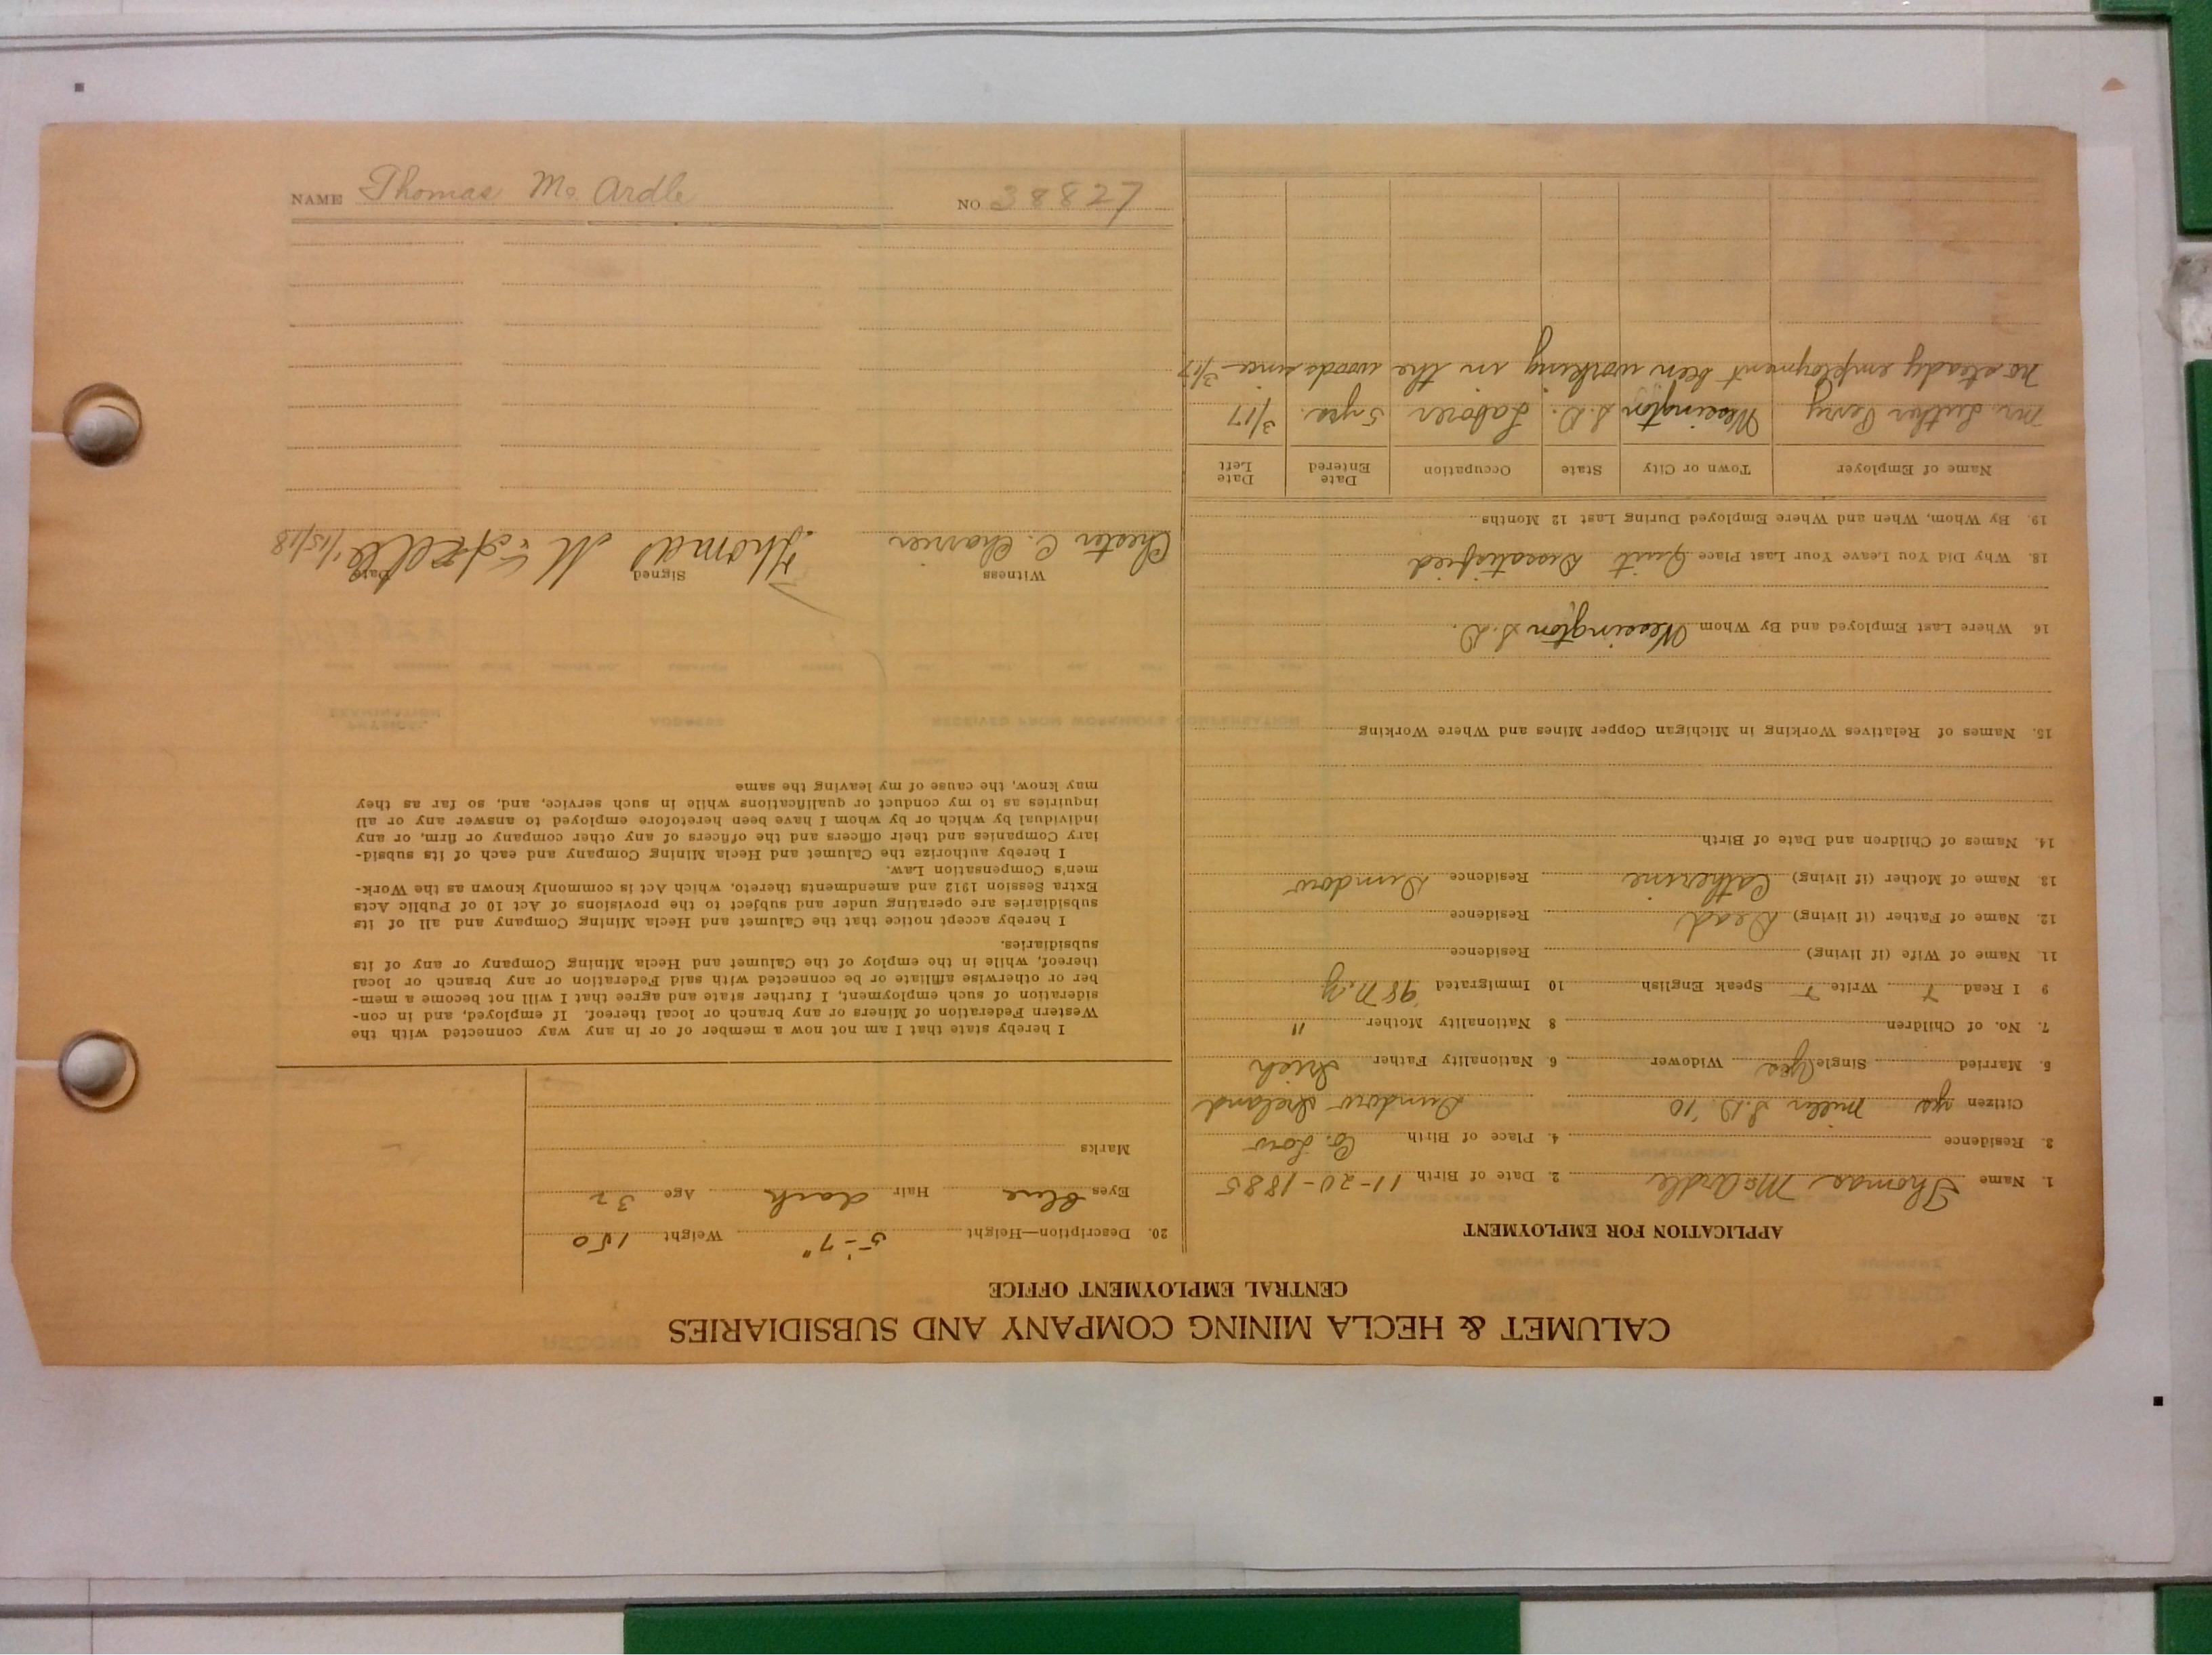 CALUMET & HECLA MINING COMPANY AND SUBSIDIARIES
CENTRAL EMPLOYMENT OFFICE
APPLICATION FOR EMPLOYMENT
1. Name Thomas McArdle 2. Date of Birth 11-20-1885
3. Residence 4. Place of Birth Co. Low
Citizen yes Miller S.D. '10 Dundow Ireland
5. Married Single Yes Widower 6 Nationality Father Irish
7. No. of Children 8 Nationality Mother "
9 I Read Write Speak English 10 Immigrated '98 N.Y
11. Name of Wife (if living) Residence
12. Name of Father (if living) Dead Residence
13. Name of Mother (if living) Catherine Residence Dundow
14. Names of Children and Date of Birth
15. Names of Relatives Working in Michigan Copper Mines and Where Working
16 Where Last Employed and By Whom Wessington S.D.
18. Why Did You Leave Your Last Place Quit Dissatisfied
19. By Whom, When and Where Employed During Last 12 Months
Name of Employer Town or City State Occupation Date Entered Date Left
Mr. Luther Perry Wessington S.D. Laborer 5 yrs. 3/17
No steady employment been working in the woods since 3/17
20. Description—Height 5'-7" Weight 150
Eyes Blue Hair dark Age 32
Marks
I hereby state that I am not now a member of or in any way connected with the
Western Federation of Miners or any branch or local thereof. If employed, and in con-
sideration of such employment, I further state and agree that I will not become a mem-
ber or otherwise affiliate or be connected with said Federation or any branch or local
thereof, while in the employ of the Calumet and Hecla Mining Company or any of its
subsidiaries.
I hereby accept notice that the Calumet and Hecla Mining Company and all of its
subsidiaries are operating under and subject to the provisions of Act 10 of Public Acts
Extra Session 1912 and amendments thereto, which Act is commonly known as the Work-
men's Compensation Law.
I hereby authorize the Calumet and Hecla Mining Company and each of its subsid-
iary Companies and their officers and the officers of any other company or firm, or any
individual by which or by whom I have been heretofore employed to answer any or all
inquiries as to my conduct or qualifications while in such service, and, so far as they
may know, the cause of my leaving the same
Witness Signed Date
Chester C. Charrier Thomas McArdle 1/15/18
NAME Thomas Mc Ardle NO 38827